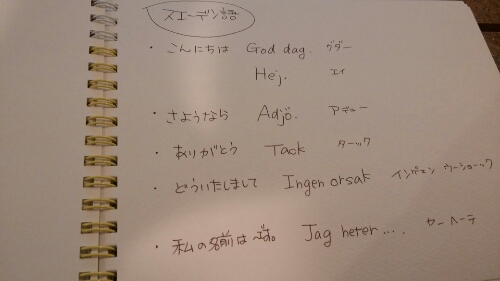 スエーデン語
・こんにちは God dag. グダー
Hej. エイ
・さようなら Adjö. アデュー
・ありがとう Tack ターック
・どういたしまして Ingen orsak インゲェン ウーショーック
・私の名前は〜です。 Jag heter.... ヤーヘーテ